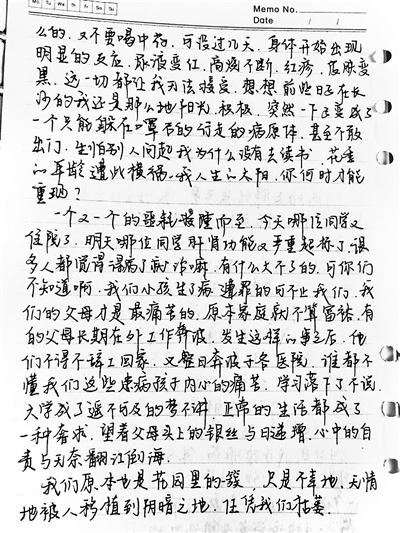 Mo Tu We Th Fr Sa Su
Memo No.
Date / /
么的，又不要喝中药，可没过几天，身体开始出现
明显的反应，尿液变红，高烧不断，红疹，皮肤变
黑，这一切都让我无法接受，想想前些日子在长
沙的我还是那么地阳光，积极，突然一下子变成了
一个只能躲在口罩后的行走的病原体，甚至不敢
出门，生怕别人问起我为什么没有去读书，花季
的年龄遭此横祸，我人生的太阳，你何时才能
重现？
一个又一个的噩耗接踵而至，今天哪位同学又
住院了，明天哪位同学肝肾功能又严重起标了，很
多人都觉得得病了就治嘛，有什么大不了的，可你们
不知道啊，我们小孩生了病遭罪的可不止我们，我
们的父母才是最痛苦的，原本家庭就不算富裕，有
的父母长期在外工作奔波，发生这样的事之后，他
们不得不辞工回家，又整日奔波于各医院，谁都不
懂我们这些患病孩子内心的痛苦，学习落下了不说，
大学成了遥不可及的梦不讲，正常的生活都成了
一种奢求，望着父母头上的银丝与日递增，心中的自
责与无奈翻江倒海。
我们原本也是花园里的一簇，只是不幸地，无情
地被人移植到阴暗之地，任凭我们枯萎。